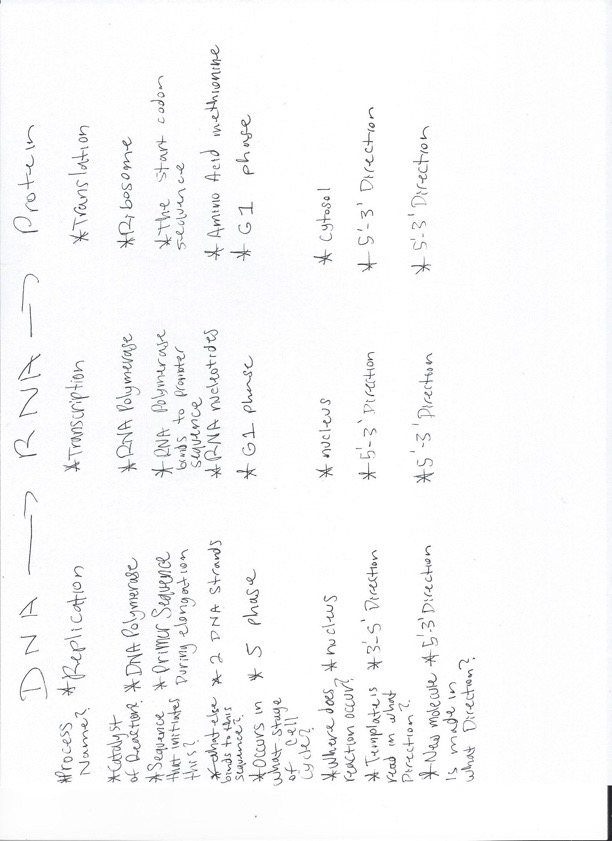 DNA → RNA → Protein
*Process Name? *Replication *Transcription *Translation
*Catalyst of Reaction? *DNA Polymerase *RNA Polymerase *Ribosome
*Sequence that initiates this? *Primer Sequence During elongation *RNA Polymerase binds to promter sequence *The start codon sequence
*what else binds to this sequence? *2 DNA Strands *RNA nucleotides *Amino Acid methionine
*Occurs in what stage of Cell Cycle? *S phase *G1 phase *G1 phase
*Where does reaction occur? *nucleus *nucleus *Cytosol
*Template is read in what Direction? *3'-5' Direction *5'-3' Direction *5'-3' Direction
*New molecule is made in what Direction? *5'-3' Direction *5'-3' Direction *5'-3' Direction